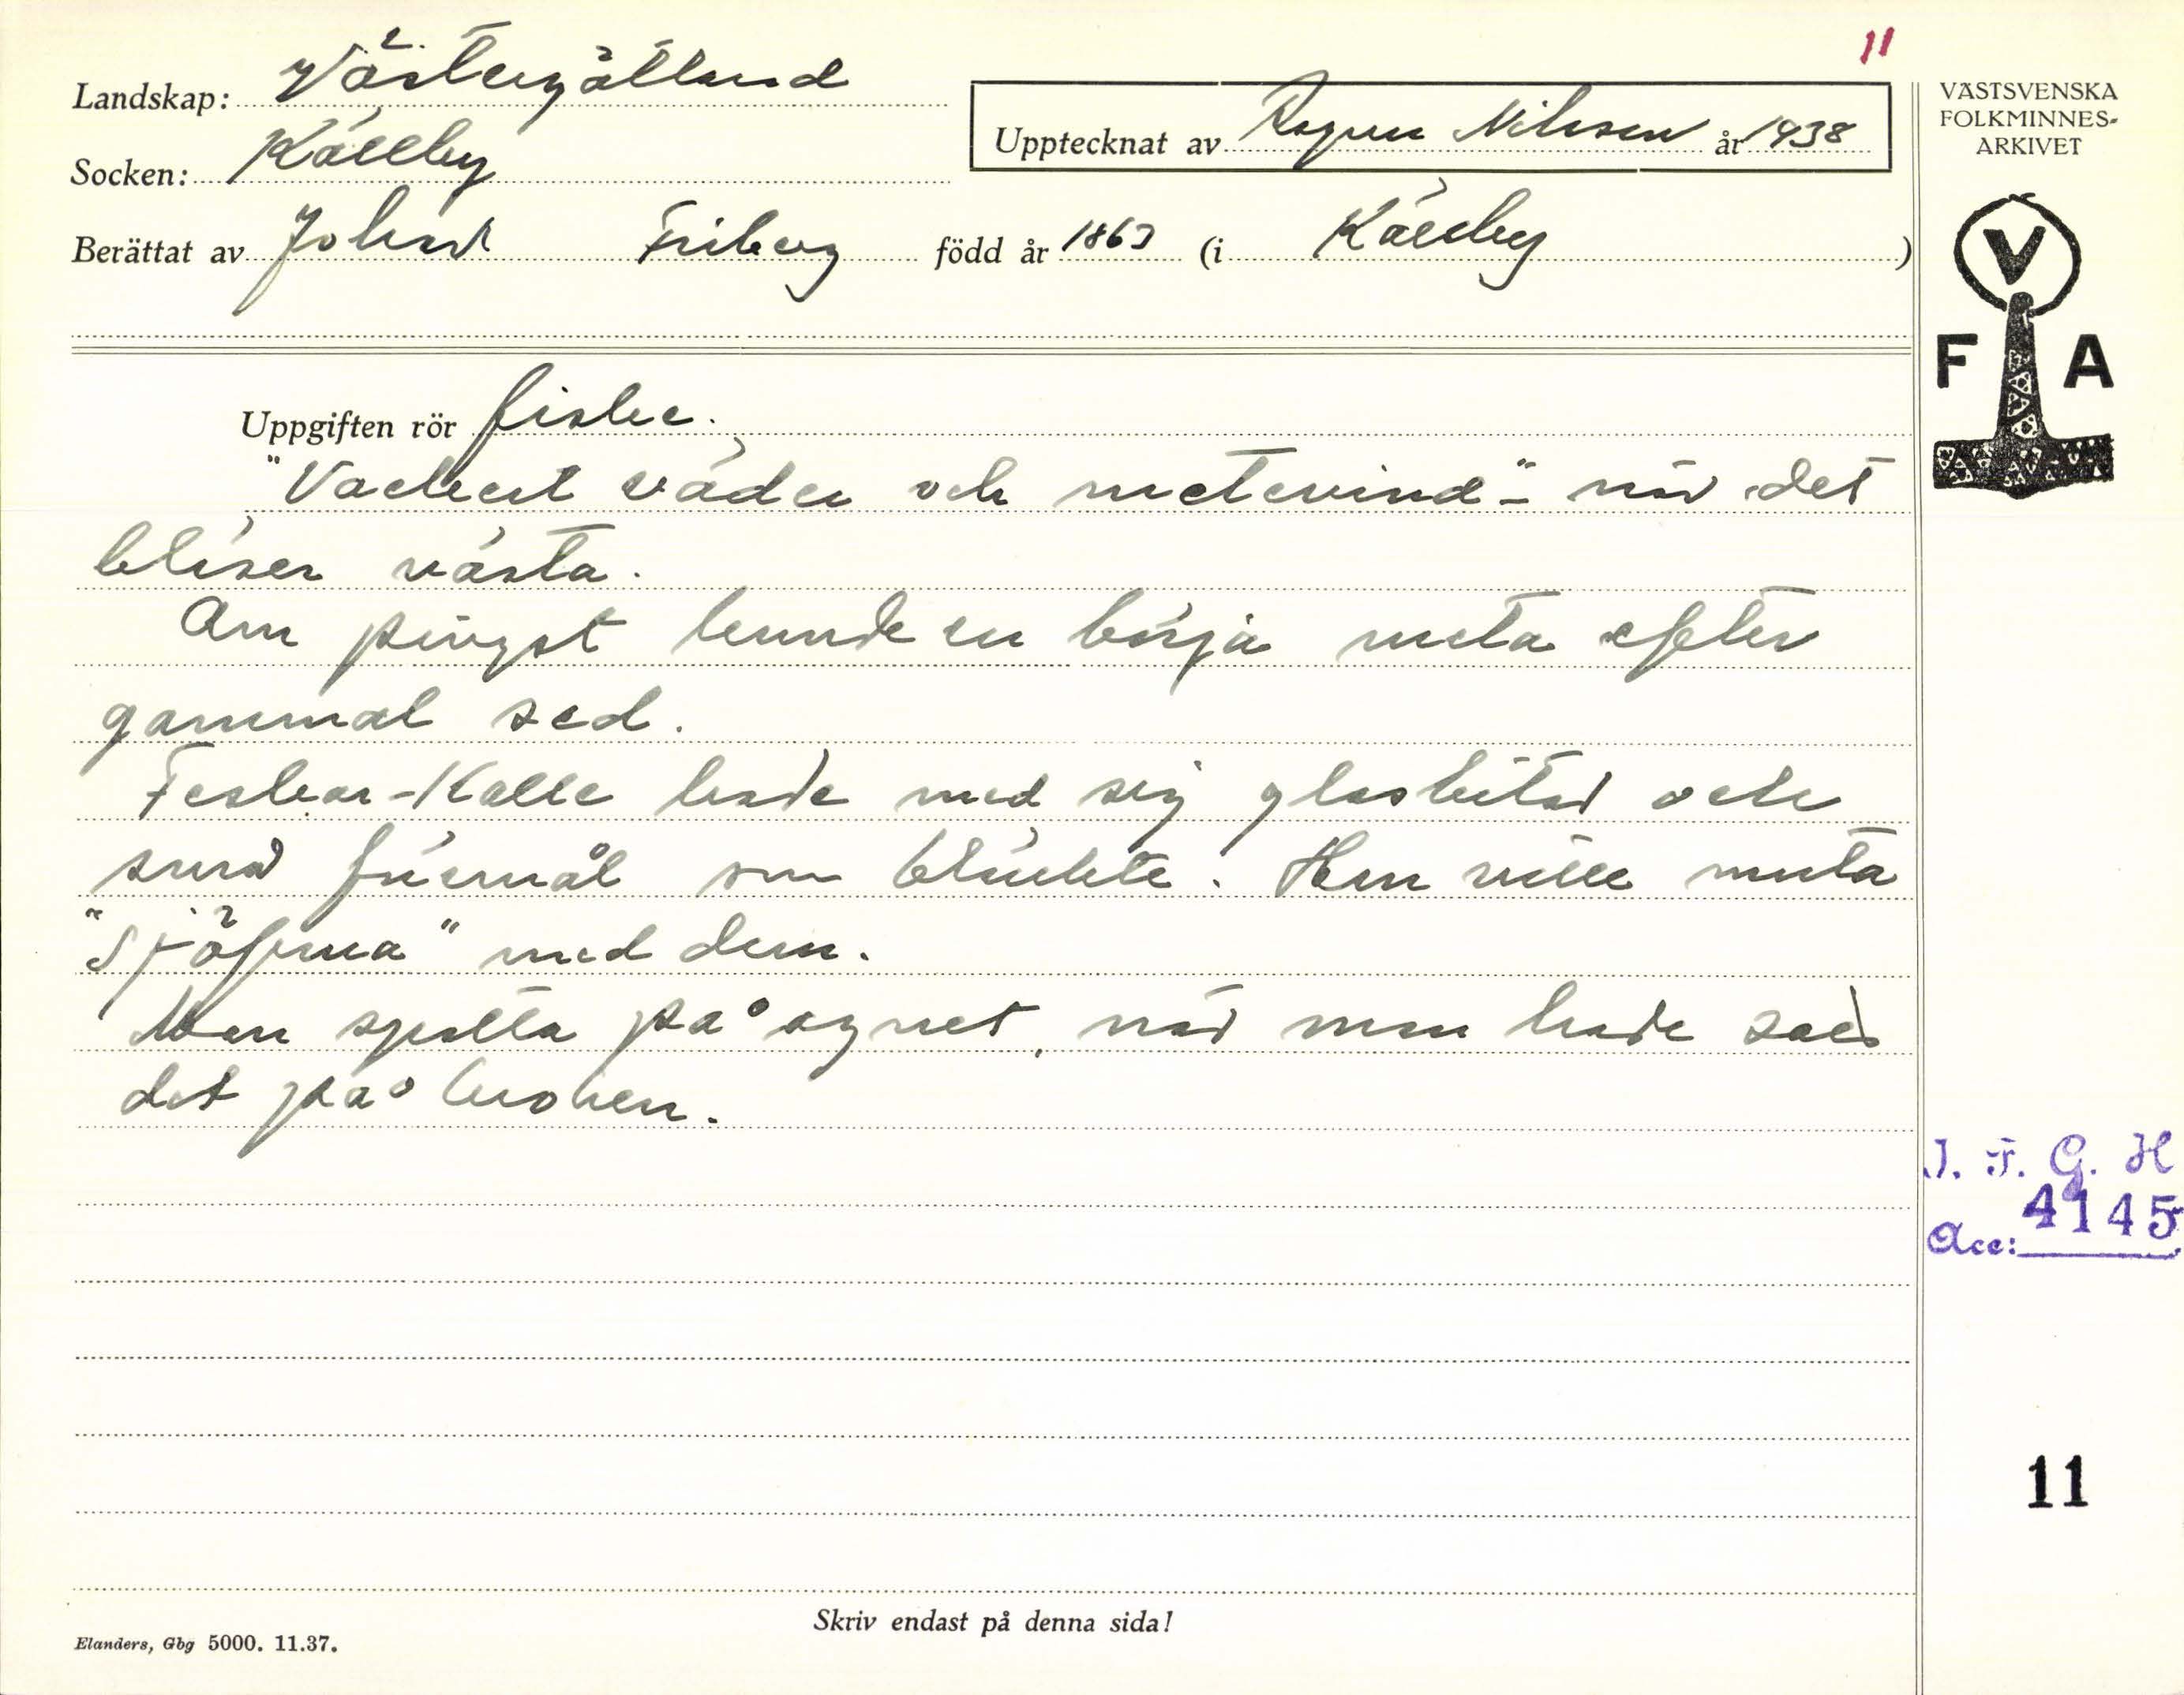 11
Landskap: Västergötland
Socken: Källby
Upptecknat av Ragnar Nilsson år 1938
Berättat av Johan Friberg född år 1863 (i Källby)
VÄSTSVENSKA
FOLKMINNES-
ARKIVET
V
F A
Uppgiften rör fiske.
"Vackert väder och metevind" - när det
blåser västa.
Om pingst kunde en börja meta efter
gammal sed.
Feskar-Kalle hade med sig glasbitar och
små föremål som blänkte. Han ville muta
"sjöfrua" med dem.
Man spotta på agnet, när man hade satt
det på kroken.
I. F. G. H
Acc: 4145
11
Skriv endast på denna sida!
Elanders, Gbg 5000. 11.37.